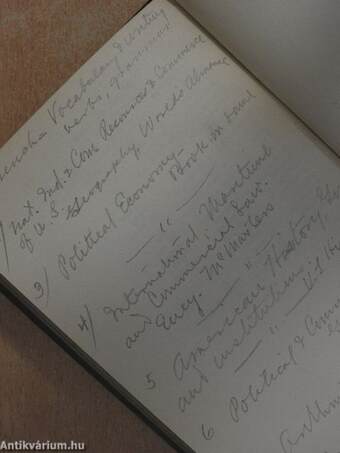 Vocabulary & writing
verbs, grammar
Nat. Ind. & Com. Resources & Commerce
of U.S. Geography World Almanac
3) Political Economy
— " — Book on hand
4) International Maritime
and Commercial Law.
Ency. McMasters
— " —
5 American History,
and institutions.
— " —
6 Political &
Antikvárium.hu